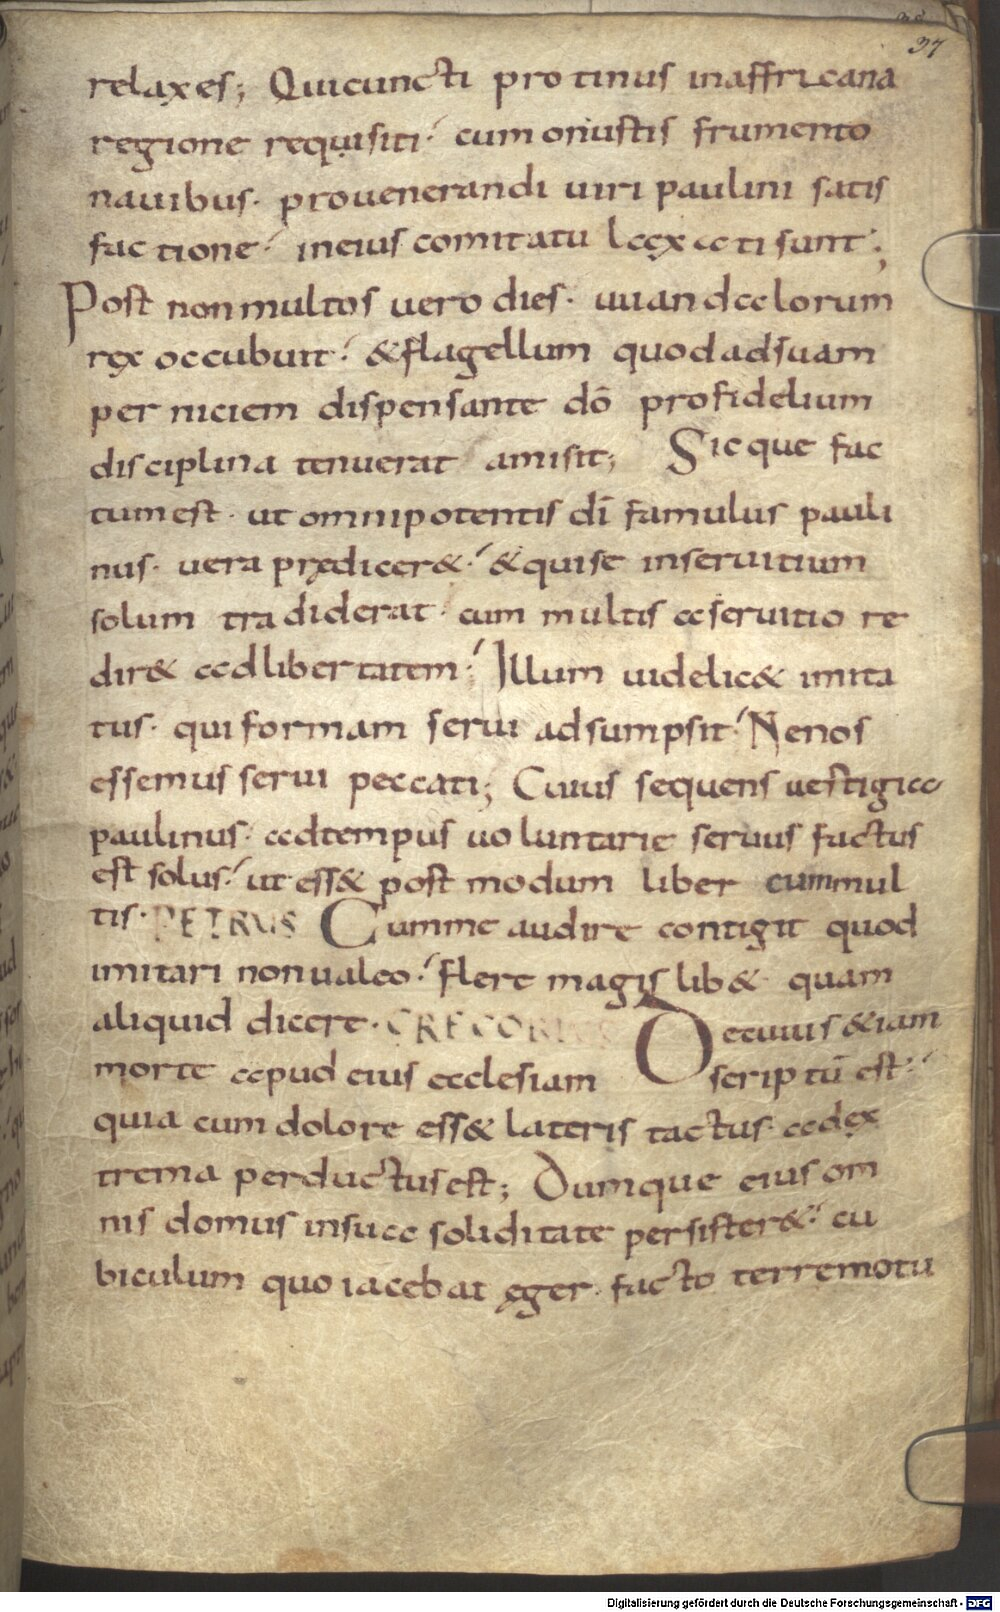 37
relaxes; Qui cuncti protinus in affricana
regione requisiti cum onustis frumento
nauibus. pro uenerandi uiri paulini satis
factione in eius comitatu laxati sunt;
Post non multos uero dies. uuandalorum
rex occubuit & flagellum quod ad suam
perniciem dispensante dō pro fidelium
disciplina tenuerat amisit; Sicque fac
tum est. ut omnipotentis dī famulus pauli
nus. uera prędicer& & qui se in seruitium
solum tradiderat. cum multis a seruitio re
dir& ad libertatem Illum uidelic& imita
tus. qui formam serui adsumpsit Ne nos
essemus serui peccati; Cuius sequens uestigia
paulinus. ad tempus uoluntarie seruus factus
est solus ut ess& post modum liber cum mul
tis. PETRUS Cum me audire contigit quod
imitari non ualeo. flere magis lib& quam
aliquid dicere. GREGORIUS De cuius &iam
morte apud eius ecclesiam scriptū est
quia cum dolore ess& lateris tactus. ad ex
trema perductus est; Dumque eius om
nis domus in sua soliditate persister& cu
biculum quo iacebat ęger. facto terremotu
Digitalisierung gefördert durch die Deutsche Forschungsgemeinschaft - DFG